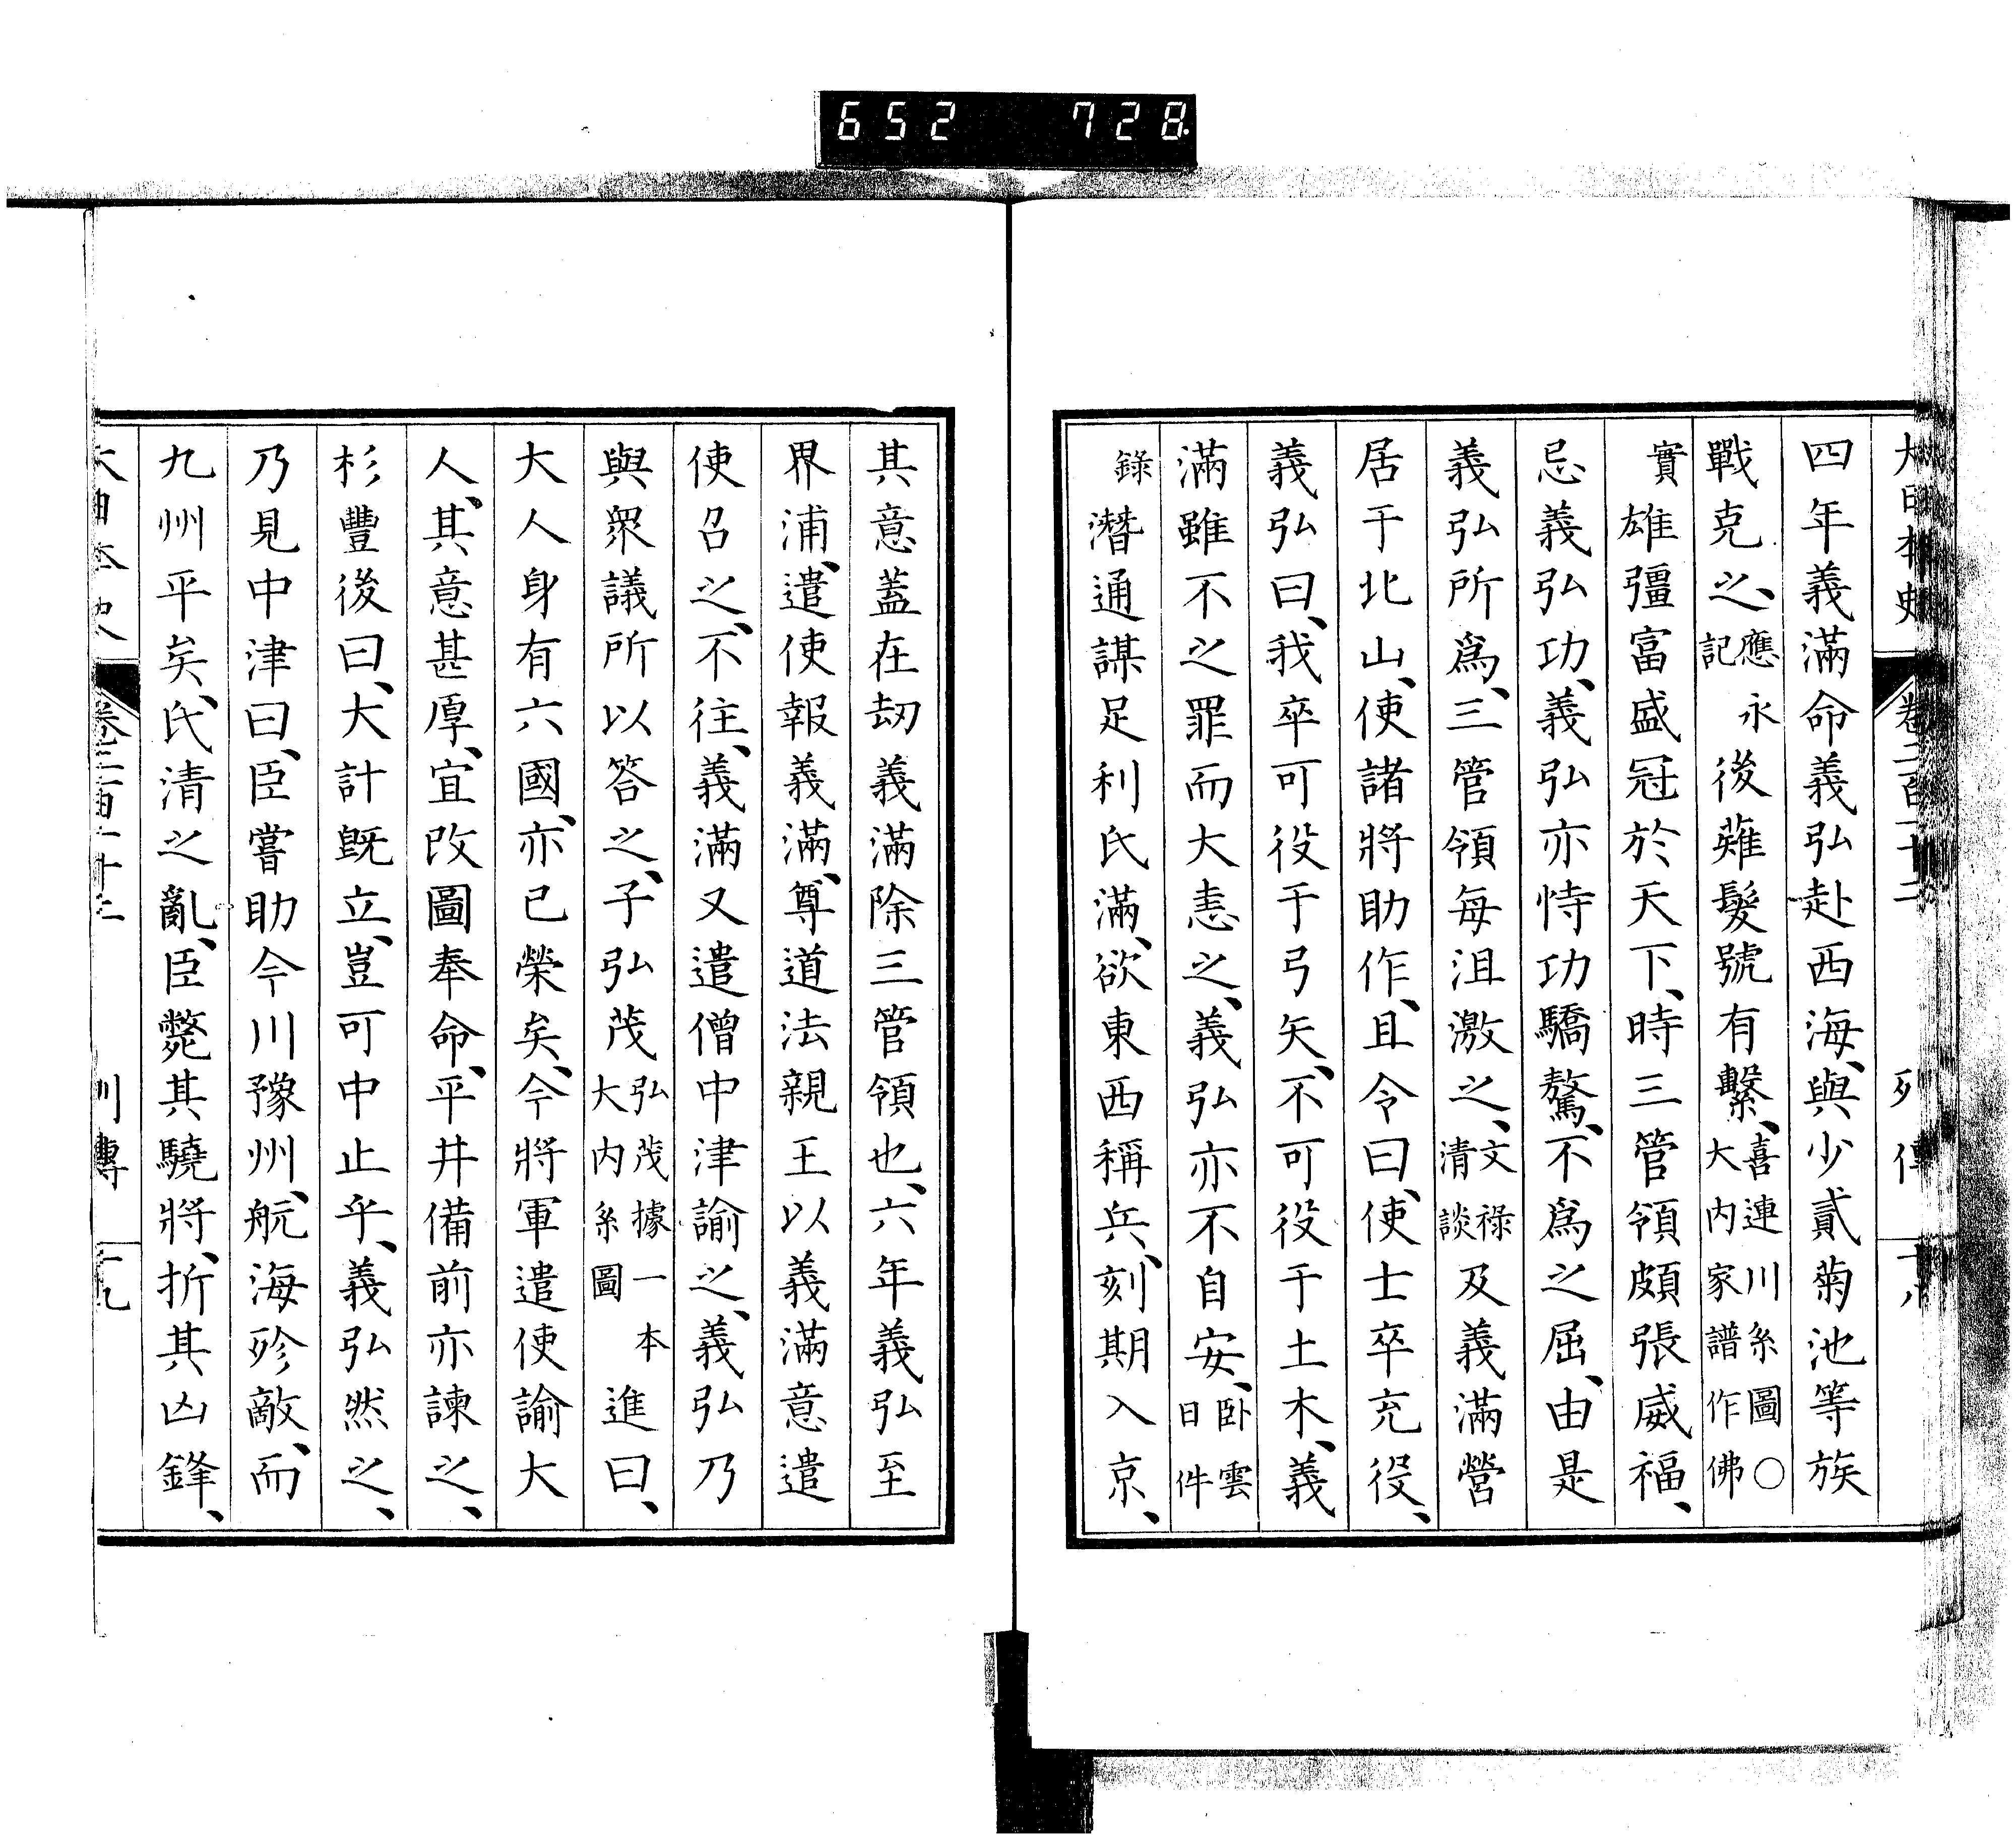 652 728
大日本史 卷二百二十二 列傳 十八
四年義滿命義弘赴西海、與少貳菊池等族
戰克之、應永記後薙髮號有繫、喜連川系圖○大内家譜作佛
實雄彊富盛冠於天下、時三管領頗張威福、
忌義弘功、義弘亦恃功驕驁、不爲之屈、由是
義弘所爲、三管領每沮激之、文祿清談及義滿營
居于北山、使諸將助作、且令曰、使士卒充役、
義弘曰、我卒可役于弓矢、不可役于土木、義
滿雖不之罪而大恚之、義弘亦不自安、臥雲日件
錄潛通謀足利氏滿、欲東西稱兵、刻期入京、
其意蓋在劫義滿除三管領也、六年義弘至
界浦、遣使報義滿、尊道法親王以義滿意遣
使召之、不往、義滿又遣僧中津諭之、義弘乃
與眾議所以答之、子弘茂弘茂據一本大内系圖進曰、
大人身有六國、亦已榮矣、今將軍遣使諭大
人、其意甚厚、宜改圖奉命、平井備前亦諫之、
杉豐後曰、大計既立、豈可中止乎、義弘然之、
乃見中津曰、臣嘗助今川豫州、航海殄敵、而
九州平矣、氏清之亂、臣斃其驍將、折其凶鋒、
大日本史 列傳